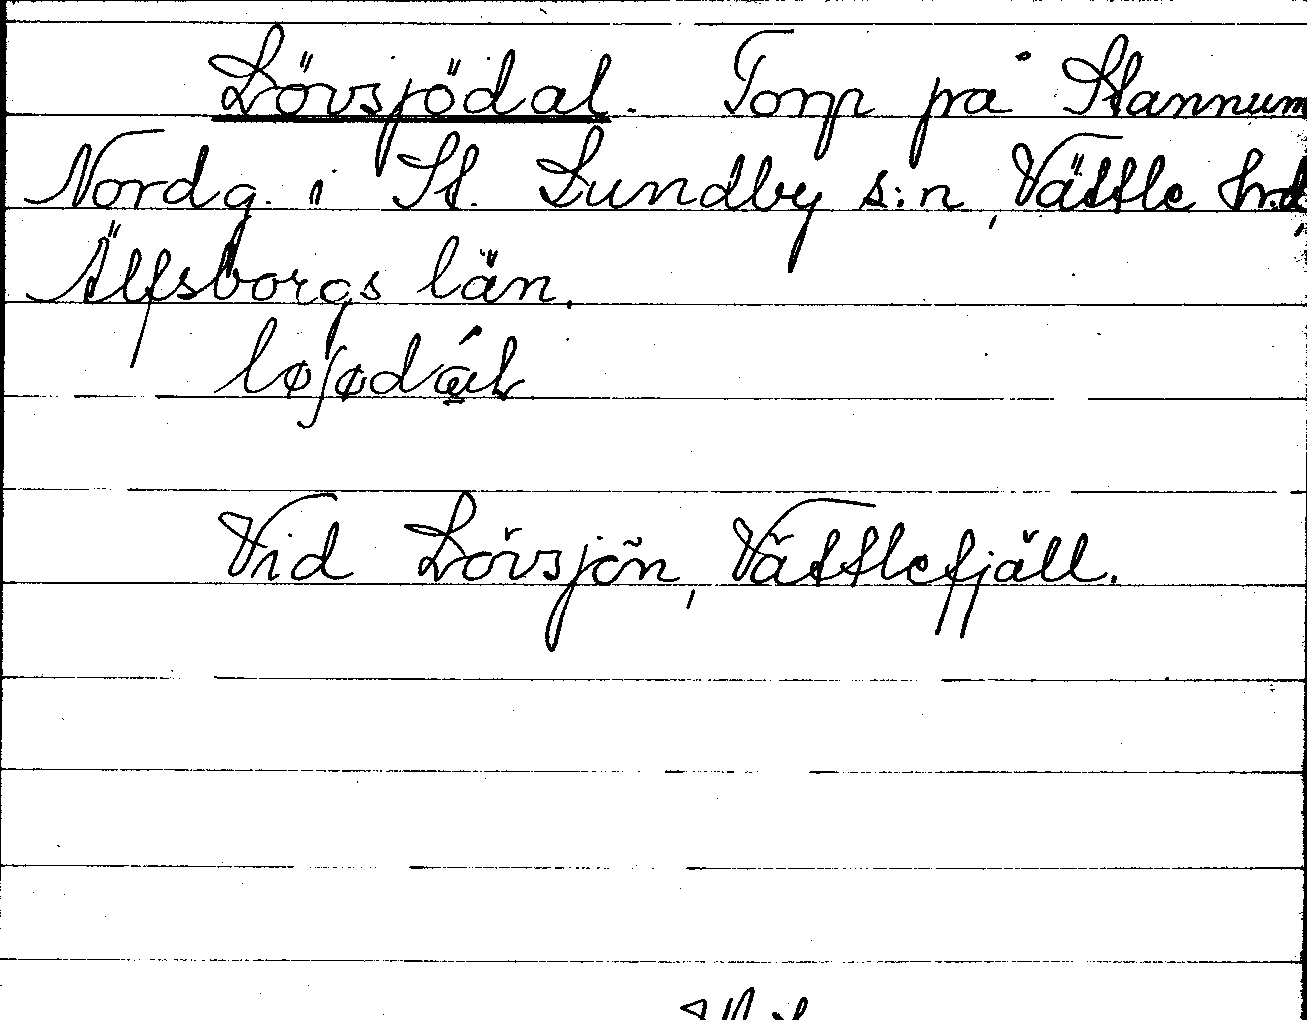 Lövsjödal. Torp på Stannum
Nordg. i St. Lundby s:n, Vättle hrd,
Älfsborgs län.
Vid Lövsjön, Vättlefjäll.